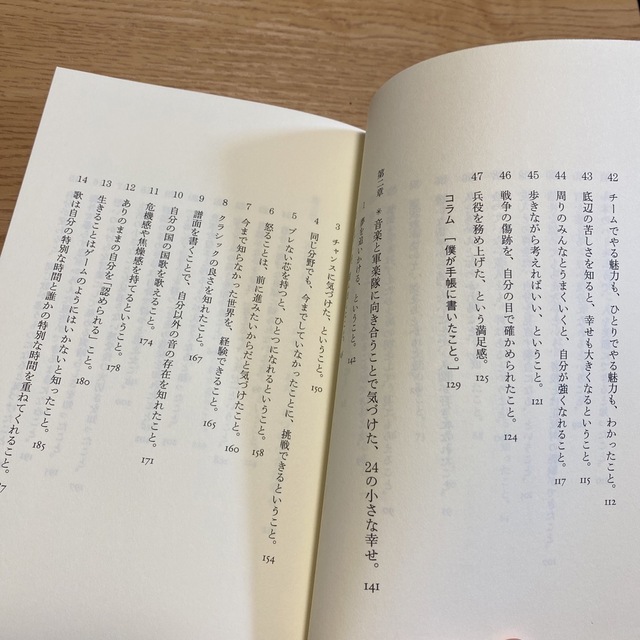 42 チームでやる魅力も、ひとりでやる魅力も、わかったこと。 112
43 底辺の苦しさを知ると、幸せも大きくなるということ。 115
44 周りのみんなとうまくいくと、自分が強くなれること。 117
45 歩きながら考えればいい、ということ。 121
46 戦争の傷跡を、自分の目で確かめられたこと。 124
47 兵役を務め上げた、という満足感。 125
コラム [僕が手帳に書いたこと。] 129
第二章 * 音楽と軍楽隊に向き合うことで気づけた、24の小さな幸せ。 141
1 夢を追いかける、ということ。 142
3 チャンスに気づけた、ということ。 150
4 同じ分野でも、今までしていなかったことに、挑戦できるということ。 154
5 ブレない芯を持つと、ひとつになれるということ。 158
6 怒ることは、前に進みたいからだと気づけたこと。 160
7 今まで知らなかった世界を、経験できること。 165
8 クラシックの良さを知れたこと。 167
9 譜面を書くことで、自分以外の音の存在を知れたこと。 171
10 自分の国の国歌を歌えること。 174
11 危機感や焦燥感を持てるということ。 178
12 ありのままの自分を「認められる」こと。 180
13 生きることはゲームのようにはいかないと知ったこと。 185
14 歌は自分の特別な時間と誰かの特別な時間を重ねてくれること。